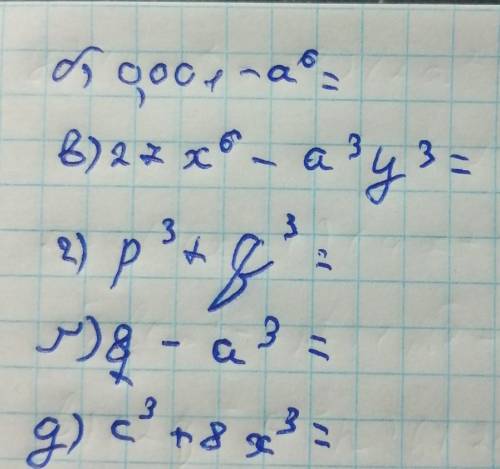 б) 0,001 - a⁶ =
в) 27x⁶ - a³y³ =
г) p³ + q³ =
г) 8 - a³ =
д) c³ + 8x³ =